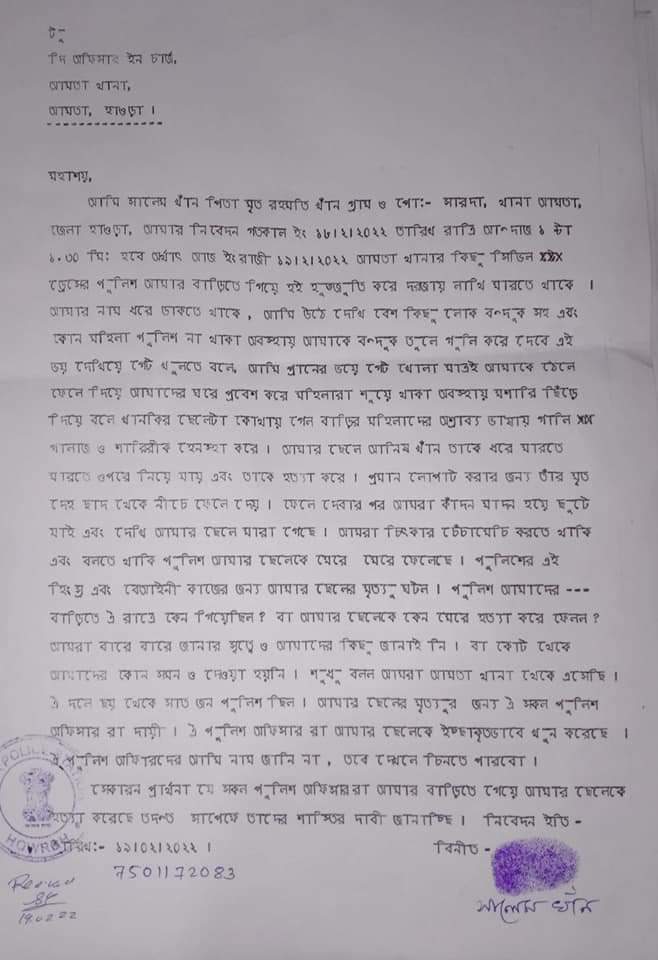 টু
দি অফিসার ইন চার্জ,
আমতা থানা,
আমতা, হাওড়া ।
মহাশয়,
আমি সালেম খাঁন পিতা মৃত রহমতি খাঁন গ্রাম ও পো:- সারদা, থানা আমতা,
জেলা হাওড়া, আমার নিবেদন গতকাল ইং ১৮/২/২০২২ তারিখ রাত্রি আন্দাজ ১ টা
১.৩০ মি: হবে অর্থাৎ আজ ইংরাজী ১৯/২/২০২২ আমতা থানার কিছু সিভিল XXX
ড্রেসের পুলিশ আমার বাড়িতে গিয়ে হই হুজ্জুতি করে দরজায় লাথি মারতে থাকে ।
আমার নাম ধরে ডাকতে থাকে , আমি উঠে দেখি বেশ কিছু লোক বন্দুক সহ এবং
কোন মহিলা পুলিশ না থাকা অবস্হায় আমাকে বন্দুক তুলে গুলি করে দেবে এই
ভয় দেখিয়ে গেট খুলতে বলে, আমি প্রানের ভয়ে গেট খোলা মাত্রই আমাকে ঠেলে
ফেলে দিয়ে আমাদের ঘরে প্রবেশ করে মহিলারা শুয়ে থাকা অবস্হায় মশারি ছিঁড়ে
দিয়ে বলে খানকির ছেলেটা কোথায় গেল বাড়ির মহিলাদের অশ্রাব্য ভাষায় গালি XX
গালাজ ও শারিরীক হেনস্হা করে । আমার ছেলে আনিষ খাঁন তাকে ধরে মারতে
মারতে ওপরে নিয়ে যায় এবং তাকে হত্যা করে । প্রমান লোপাট করার জন্য তাঁর মৃত
দেহ ছাদ থেকে নীচে ফেলে দেয় । ফেলে দেবার পর আমরা কাঁদন মাদন হয়ে ছুটে
যাই এবং দেখি আমার ছেলে মারা গেছে । আমরা চিৎকার চেঁচামেচি করতে থাকি
এবং বলতে থাকি পুলিশ আমার ছেলেকে মেরে মেরে ফেলেছে । পুলিশের এই
হিংস্র এবং বেআইনী কাজের জন্য আমার ছেলের মৃত্যু ঘটল । পুলিশ আমাদের ---
বাড়িতে ঐ রাতে কেন গিয়েছিল? বা আমার ছেলেকে কেন মেরে হত্যা করে ফেলল?
আমরা বারে বারে জানার সূত্বে ও আমাদের কিছু জানাই নি । বা কোর্ট থেকে
আমাদের কোন সমন ও দেওয়া হয়নি । শুধু বলল আমরা আমতা থানা থেকে এসেছি ।
ঐ দলে ছয় থেকে সাত জন পুলিশ ছিল । আমার ছেলের মৃত্যুর জন্য ঐ সকল পুলিশ
অফিসার রা দায়ী । ঐ পুলিশ অফিসার রা আমার ছেলেকে ইচ্ছাকৃতভাবে খুন করেছে ।
ঐ পুলিশ অফিারদের আমি নাম জানি না , তবে দেখলে চিনতে পারবো ।
সেকারন প্রার্থনা যে সকল পুলিশ অফিসাররা আমার বাড়িতে গেয়ে আমার ছেলেকে
হত্যা করেছে তদন্ত সাপেক্ষে তাদের শাস্তির দাবী জানাচ্ছি । নিবেদন ইতি -
তারিখ:- ১৯/০২/২০২২ । বিনীত -
7501172083
সালেম খাঁন
POLICE
HOWRAH
19.02.22